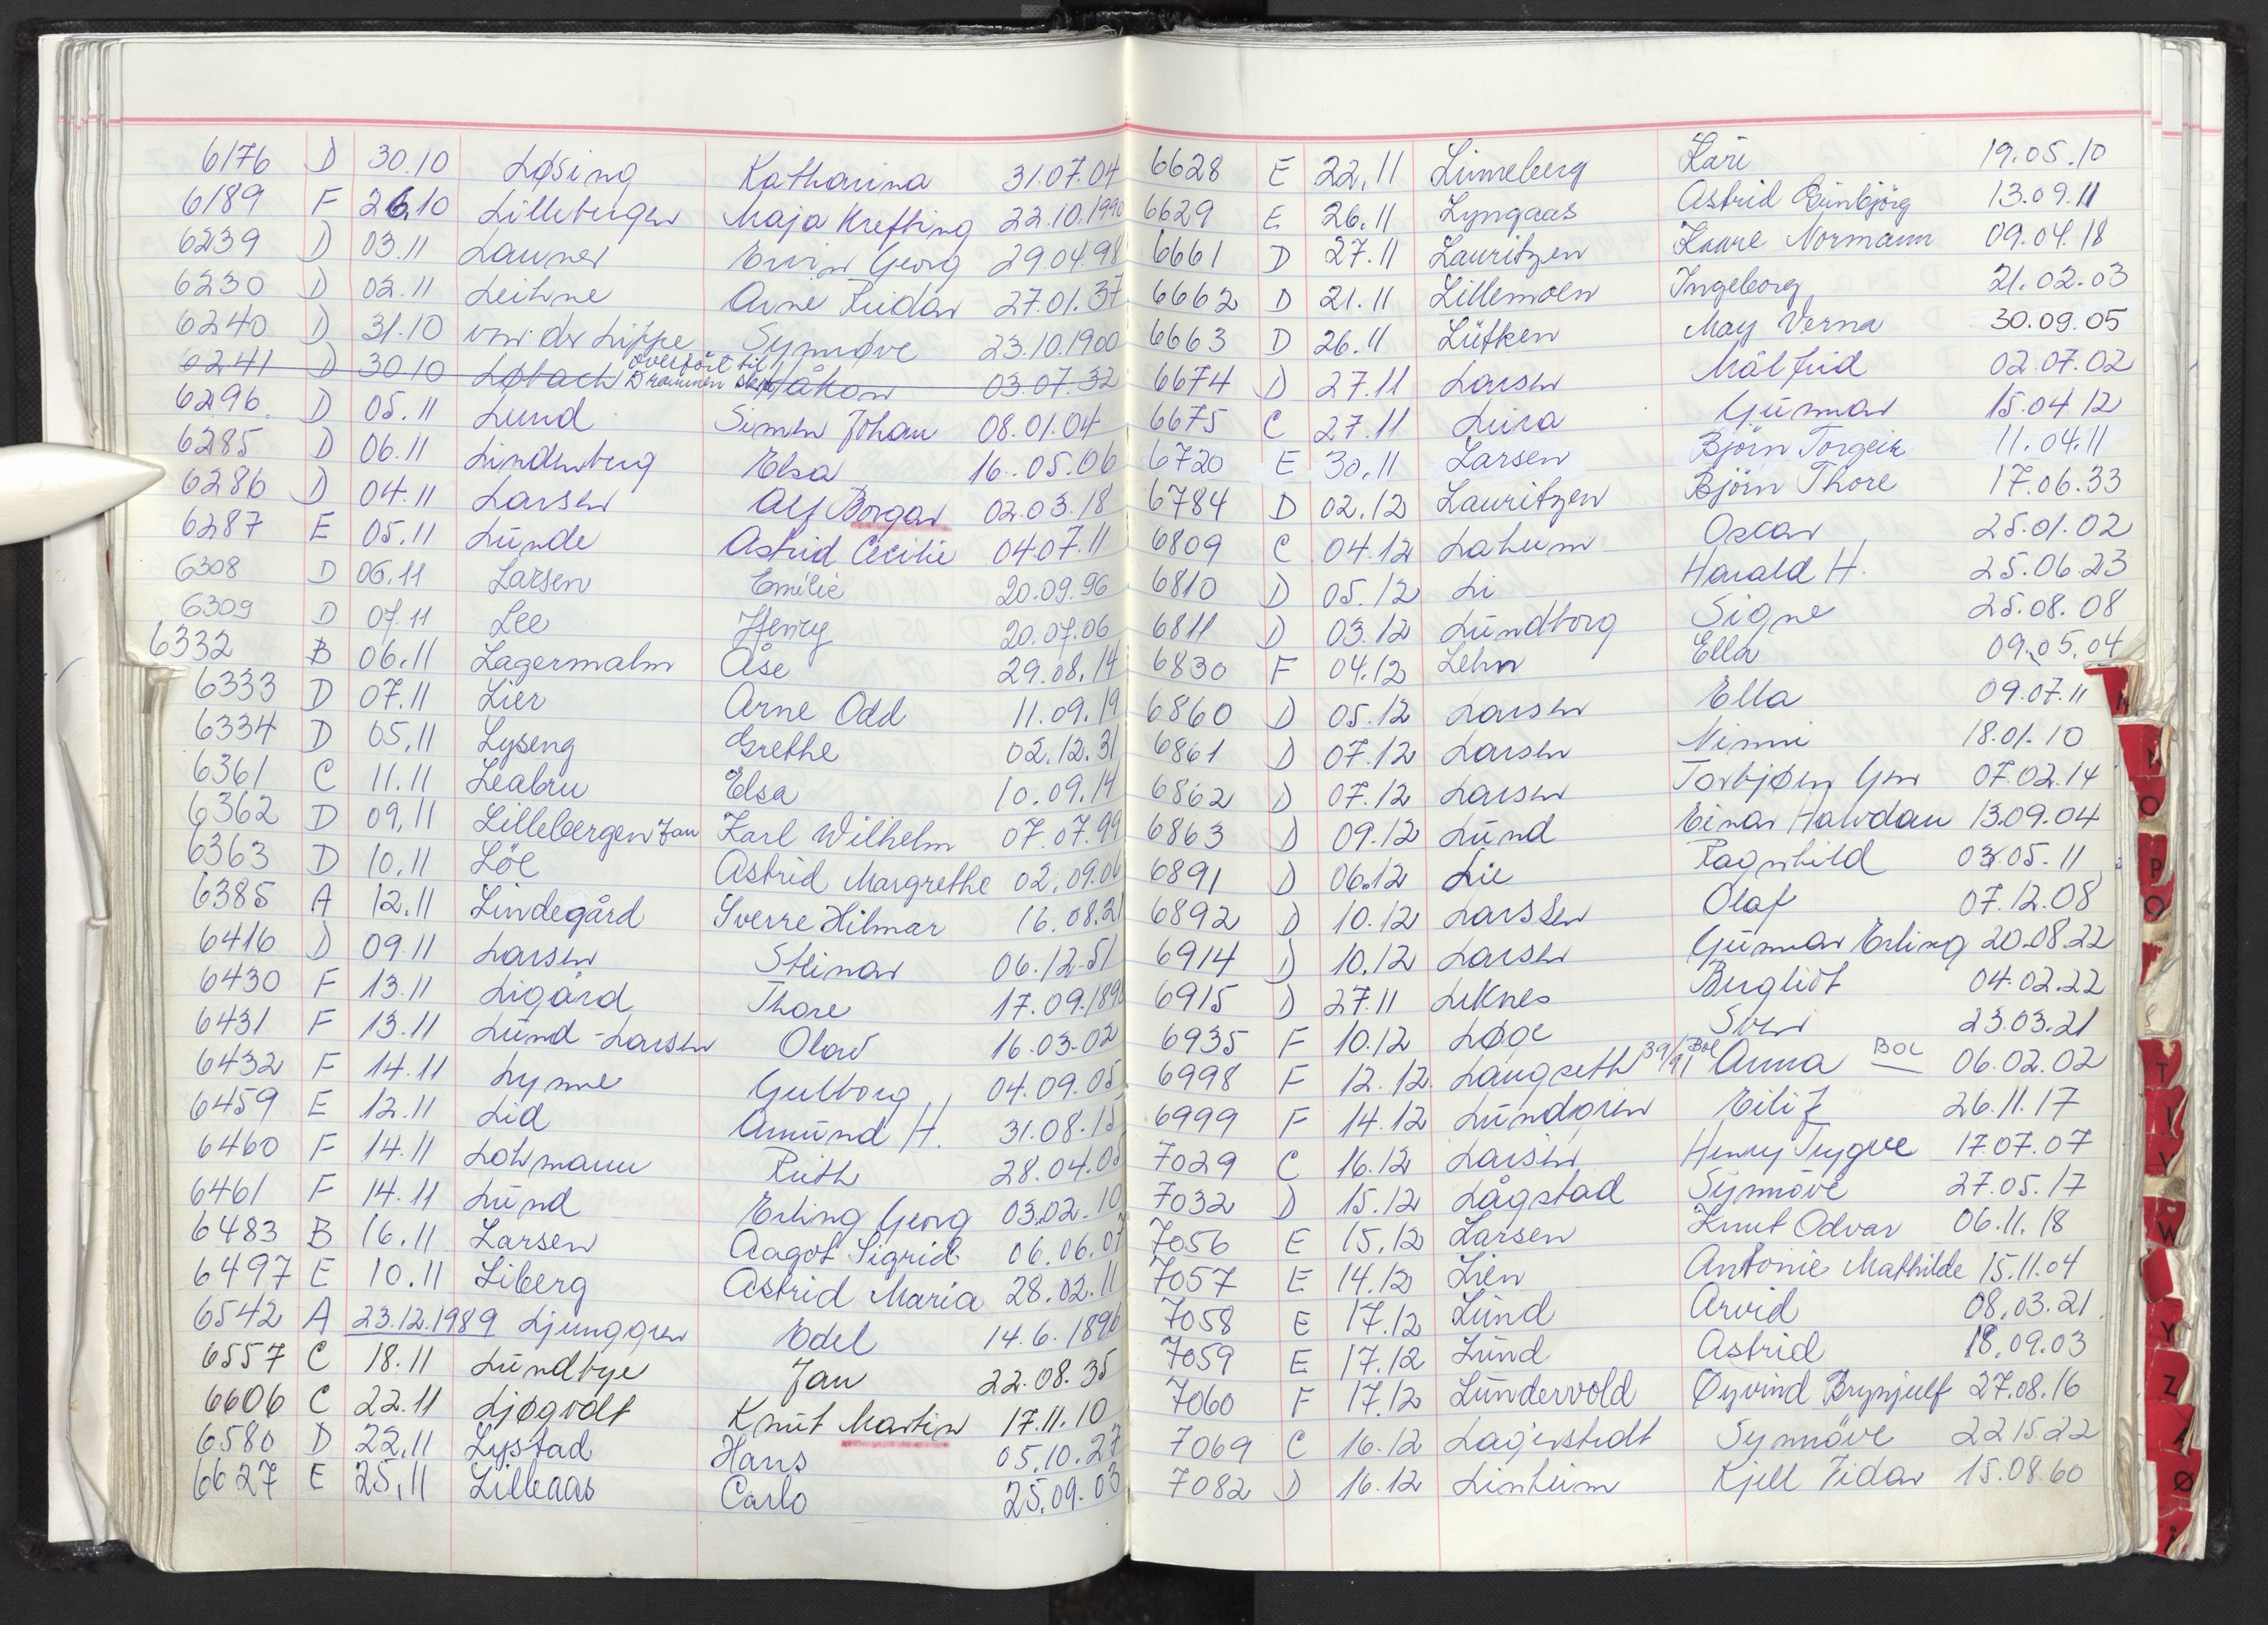 6176 D 30.10 Løsing Katharina 31.07.04
6189 F 26.10 Lilleberger Maja Krefting 22.10.1990
6239 D 03.11 Launer Erwin Georg 29.04.98
6230 D 02.11 Leihne Arne Reidar 27.01.37
6240 D 31.10 von der Lippe Synnøve 23.10.1900
6241 D 30.10 Løbach Overført til Drammen skr. Håkon 03.07.32
6296 D 05.11 Lund Simen Johan 08.01.04
6285 D 06.11 Lindenberg Elsa 16.05.06
6286 D 04.11 Larsen Alf Borgar 02.03.18
6287 E 05.11 Lunde Astrid Cecilie 04.07.11
6308 D 06.11 Larsen Emilie 20.09.96
6309 D 07.11 Lee Henry 20.07.06
6332 B 06.11 Lagermalm Åse 29.08.14
6333 D 07.11 Lier Arne Odd 11.09.19
6334 D 05.11 Lyseng Grethe 02.12.31
6361 C 11.11 Leabru Elsa 10.09.14
6362 D 09.11 Lillebergen Jan Karl Wilhelm 07.07.99
6363 D 10.11 Löe Astrid Margrethe 02.09.06
6385 A 12.11 Lindegård Sverre Hilmar 16.08.21
6416 D 09.11 Larsen Steinar 06.12.51
6430 F 13.11 Ligård Thore 17.09.189
6431 F 13.11 Lund-Larsen Olav 16.03.02
6432 F 14.11 Lynne Gulborg 04.09.05
6459 E 12.11 Lid Amund H. 31.08.15
6460 F 14.11 Lohmann Ruth 28.04.05
6461 F 14.11 Lund Erling Georg 03.02.10
6483 B 16.11 Larsen Aagot Sigrid 06.06.07
6497 E 10.11 Liberg Astrid Maria 28.02.11
6542 A 23.12.1989 Ljunggren Edel 14.6.1896
6557 C 18.11 Lundbye Jan 22.08.35
6606 C 22.11 Ljøgodt Knut Martin 17.11.10
6580 D 22.11 Lystad Hans 05.10.27
6627 E 25.11 Lilleaas Carlo 25.09.03
6628 E 22.11 Linneberg Kari 19.05.10
6629 E 26.11 Lyngaas Astrid Einbjörg 13.09.11
6661 D 27.11 Lauritzen Kaare Normann 09.04.18
6662 D 21.11 Lillemoen Ingeborg 21.02.03
6663 D 26.11 Lütken May Verna 30.09.05
6674 D 27.11 Larsen Målfrid 02.07.02
6675 C 27.11 Leira Gunnar 15.04.12
6720 E 30.11 Larsen Björn Torgeir 11.04.11
6784 D 02.12 Lauritzen Björn Thore 17.06.33
6809 C 04.12 Laheim Oscar 25.01.02
6810 D 05.12 Li Harald H. 25.06.23
6811 D 03.12 Lundborg Signe 25.08.08
6830 F 04.12 Lehn Ella 09.05.04
6860 D 05.12 Larsen Ella 09.07.11
6861 D 07.12 Larsen Ninni 18.01.10
6862 D 07.12 Larsen Torbjørn Gm 07.02.14
6863 D 09.12 Lund Einar Halvdan 13.09.04
6891 D 06.12 Lie Ragnhild 03.05.11
6892 D 10.12 Larssen Olaf 07.12.08
6914 D 10.12 Larsen Gunnar Erling 20.08.22
6915 D 27.11 Leknes Bergliot 04.02.22
6935 F 10.12 Løge Sven 23.03.21
6998 F 12.12. Langseth 39/91 Bol Anna BOL 06.02.02
6999 F 14.12 Lundgren Eilif 26.11.17
7029 C 16.12 Larsen Henry Trygve 17.07.07
7032 D 15.12 Lågstad Synnöve 27.05.17
7056 E 15.12 Larsen Knut Odvar 06.11.18
7057 E 14.12 Lien Antonie Mathilde 15.11.04
7058 E 17.12 Lund Arvid 08.03.21
7059 E 17.12 Lund Astrid 18.09.03
7060 F 17.12 Lundervold Øyvind Brynjulf 27.08.16
7069 C 16.12 Lagerstedt Synnöve 22 15 22
7082 D 16.12 Linheim Kjell Vidar 15.08.60